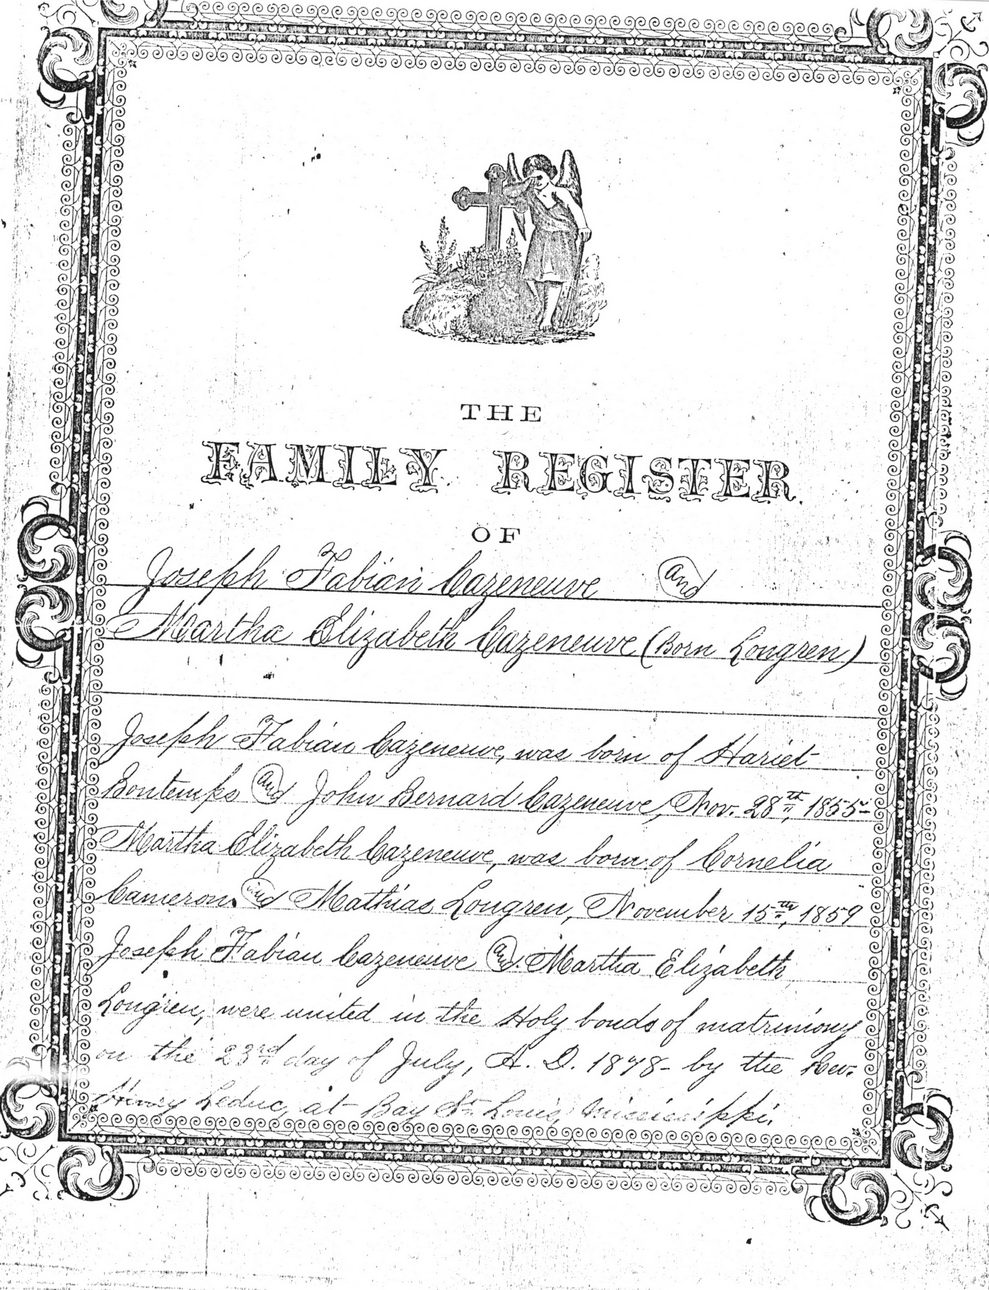 THE
FAMILY REGISTER
OF
Joseph Fabian Cazeneuve and
Martha Elizabeth Cazeneuve (Born Longren)
Joseph Fabian Cazeneuve, was born of Hariet
Bontemps and John Bernard Cazeneuve, Nov. 28th, 1855-
Martha Elizabeth Cazeneuve, was born of Cornelia
Cameron and Mathias Longren, November 15th, 1859
Joseph Fabian Cazeneuve and Martha Elizabeth
Longren, were united in the Holy bonds of matrimony
on the 23rd day of July, A. D. 1878- by the Rev.
Henry Leduc, at Bay St. Louis, Mississippi.